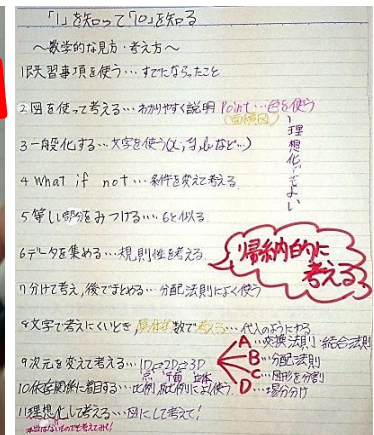 「1」を知って「10」を知る
～数学的な見方・考え方～
1 既習事項を使う…すでにならったこと
2 図を使って考える…わかりやすく説明 Point…色を使う
(面積図)
↓理想化でよい
3 一般化する…文字を使う(x,y,a,bなど…)
4 What if not…条件を変えて考える
5 等しい部分をみつける…6と似る
6 データを集める…規則性を考える
帰納的に
考える
7 分けて考え,後でまとめる…分配法則によく使う
8 文字で考えにくいとき,具体的数で考える…代入のようにする
A…交換法則・結合法則
9 次元を変えて考える…1D⇔2D⇔3D
B…分配法則
平面 立体
C…図形を分割
10 依存関係に着目する…比例,反比例によく使う
D…場合分け
11 理想化して考える…図にして考えて!